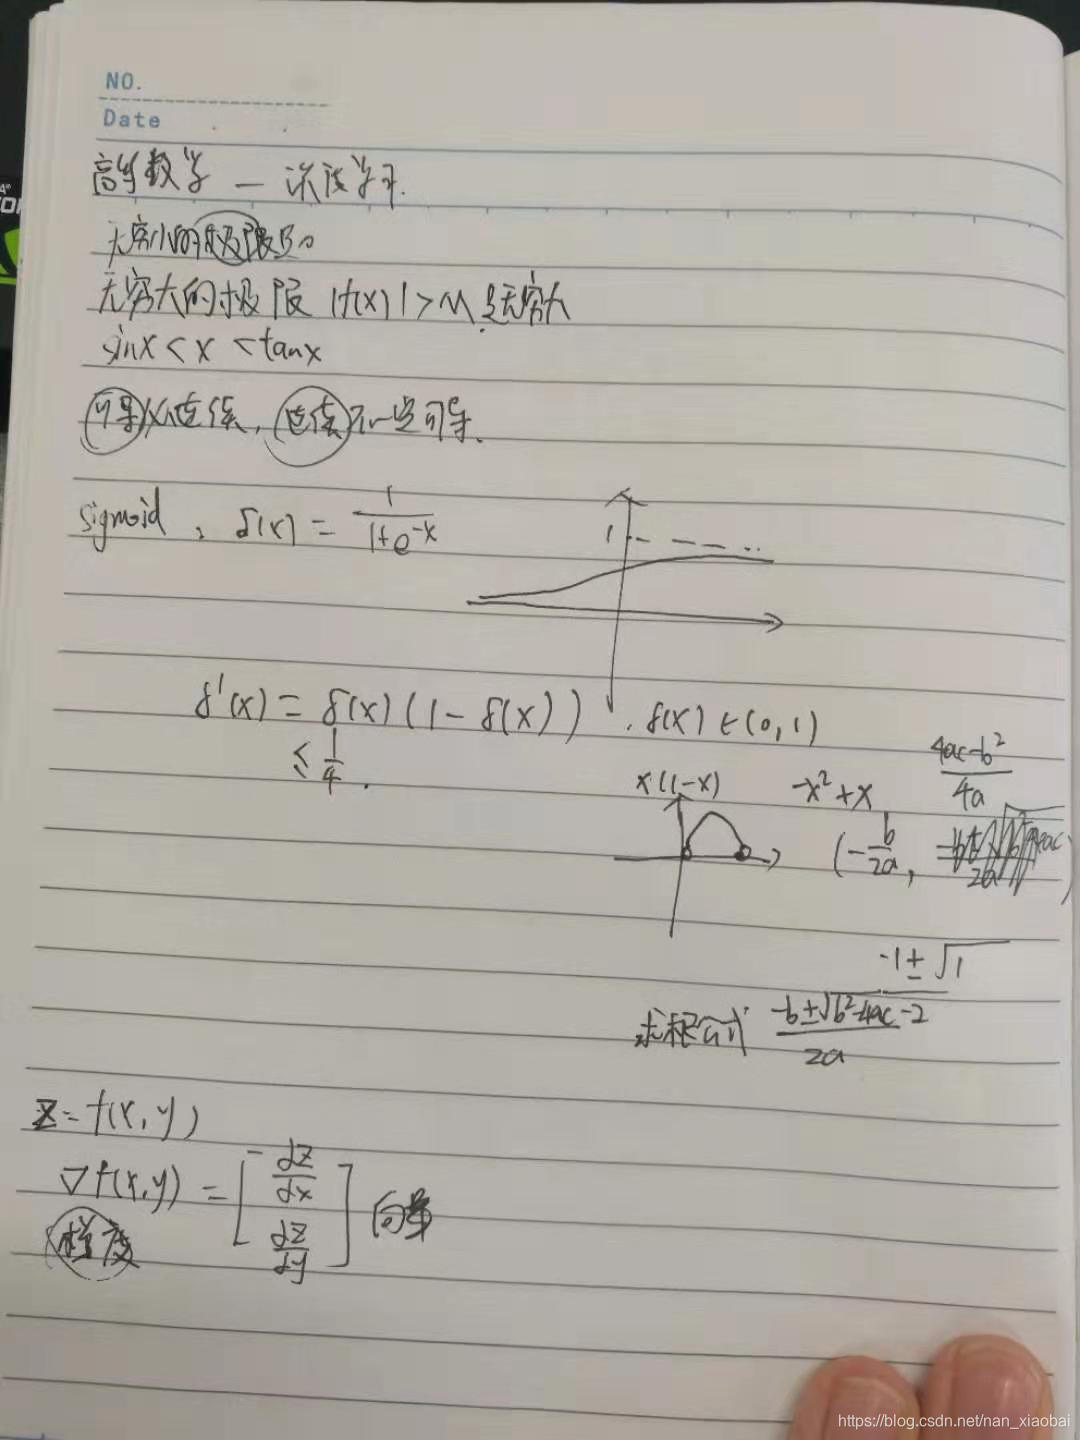 NO.
Date
高等数学 — 深度学习.
无穷小的极限是0
无穷大的极限 |f(x)| > M 是无穷大
sinx < x < tanx
可导必连续, 连续不一定可导.
sigmoid, δ(x) = 1/(1+e^-x)
1
δ'(x) = δ(x)(1-δ(x)) . δ(x) ∈ (0,1)
≤ 1/4 .
x(1-x) -x²+x (4ac-b²)/4a
(-b/2a, )
-1±√1
-2
求根公式 (-b±√b²-4ac)/2a
Z = f(x,y)
▽f(x,y) = [dz/dx dz/dy] 向量
梯度
https://blog.csdn.net/nan_xiaobai